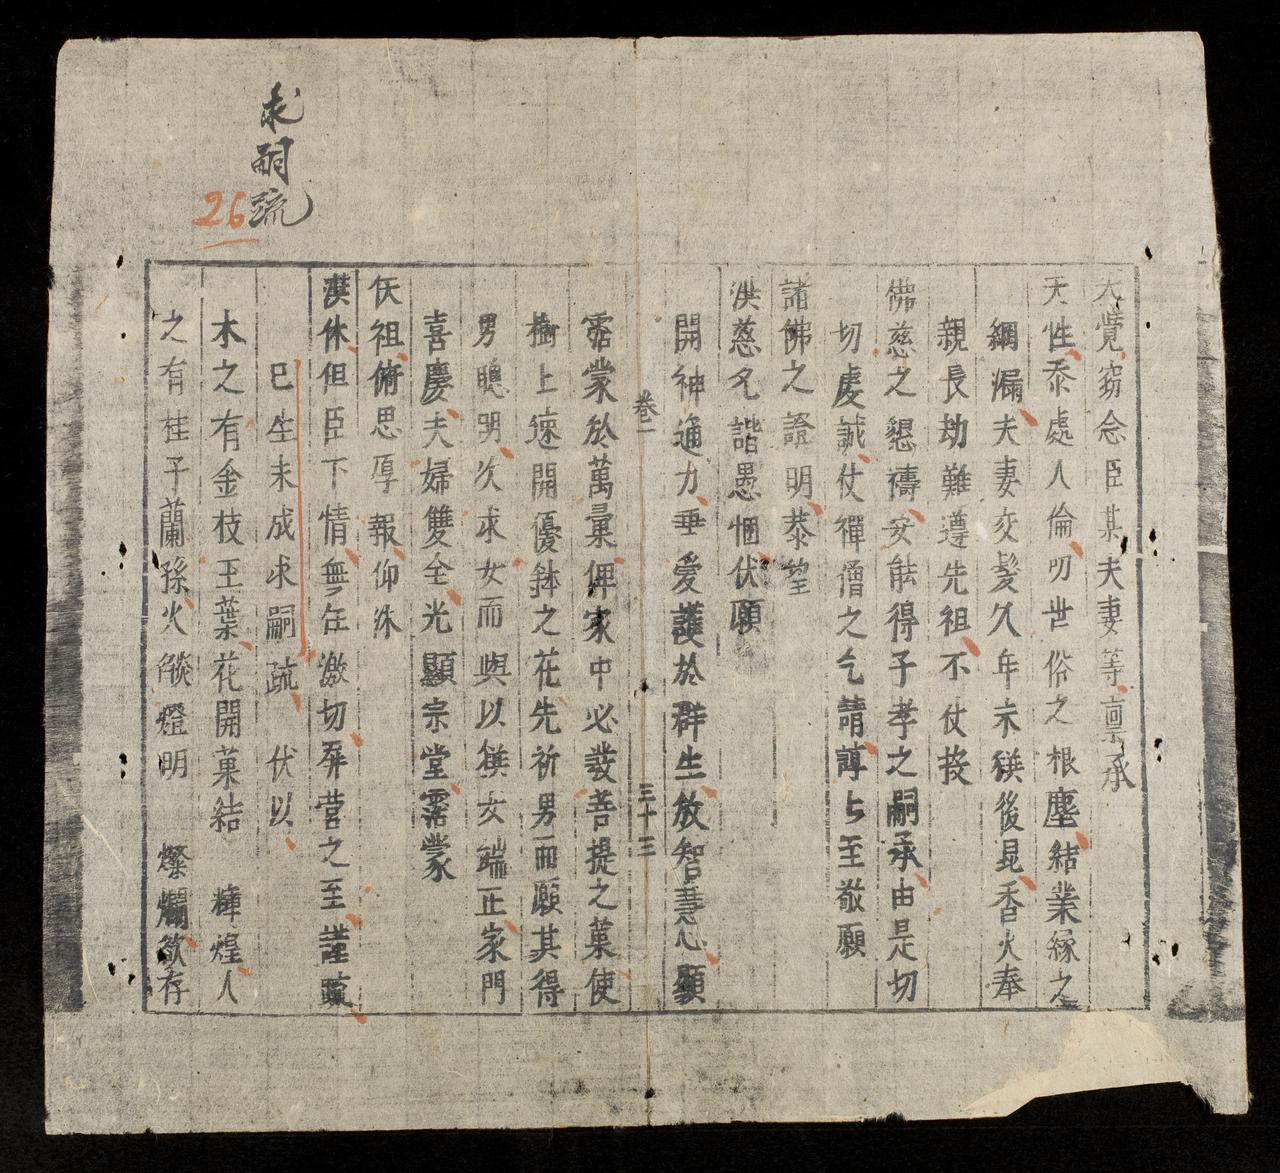 求嗣疏
26
大覺竊念臣某夫妻等稟承
天性忝處人倫叨世俗之根塵結業緣之
綱漏夫妻交髮久年未獲後昆香火奉
親長劫難遵先祖不仗投
佛慈之懇禱安能得子孝之嗣承由是切
切虔誠仗禪僧之乞請諄与至敬願
諸佛之證明恭望
洪慈允諧愚悃伏願
開神通力垂愛護於群生放智慧心顯
卷二
三十三
霑蒙於萬彙俾家中必發菩提之菓使
樹上速開優鉢之花先祈男而願其得
男聰明次求女而與以獲女端正家門
喜慶夫婦雙全光顯宗堂霑蒙
天祖俯思厚報仰洙
洪休但臣下情無任激切屏营之至謹疏
巳生未成求嗣疏 伏以
木之有金枝玉葉花開菓結 輝煌人
之有桂子蘭孫火燄燈明 燦爛欲存